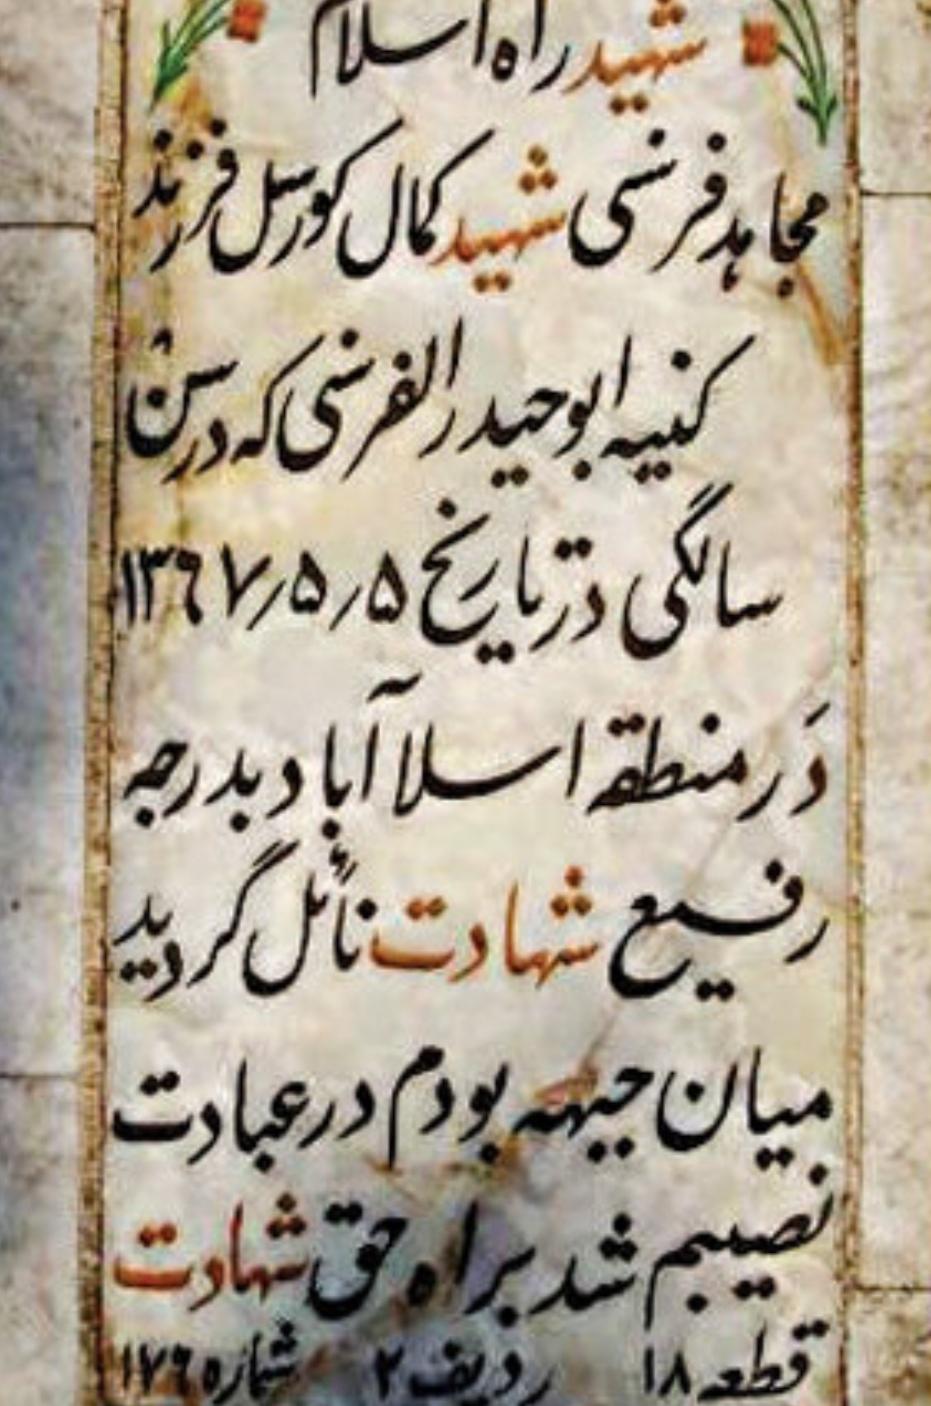 شهید راه اسلام
مجاهد فرنسی شهید کمال کورسل فرزند
کنیه ابوحیدر الفرنسی که در سن
سالگی در تاریخ ۱۳۶۷٫۵٫۵
در منطقه اسلا آباد بدرجه
رفیع شهادت نائل گردید
میان جبهه بودم در عبادت
نصیبم شد براه حق شهادت
قطعه ۱۸ ردیف ۲ شماره ۱۷۶